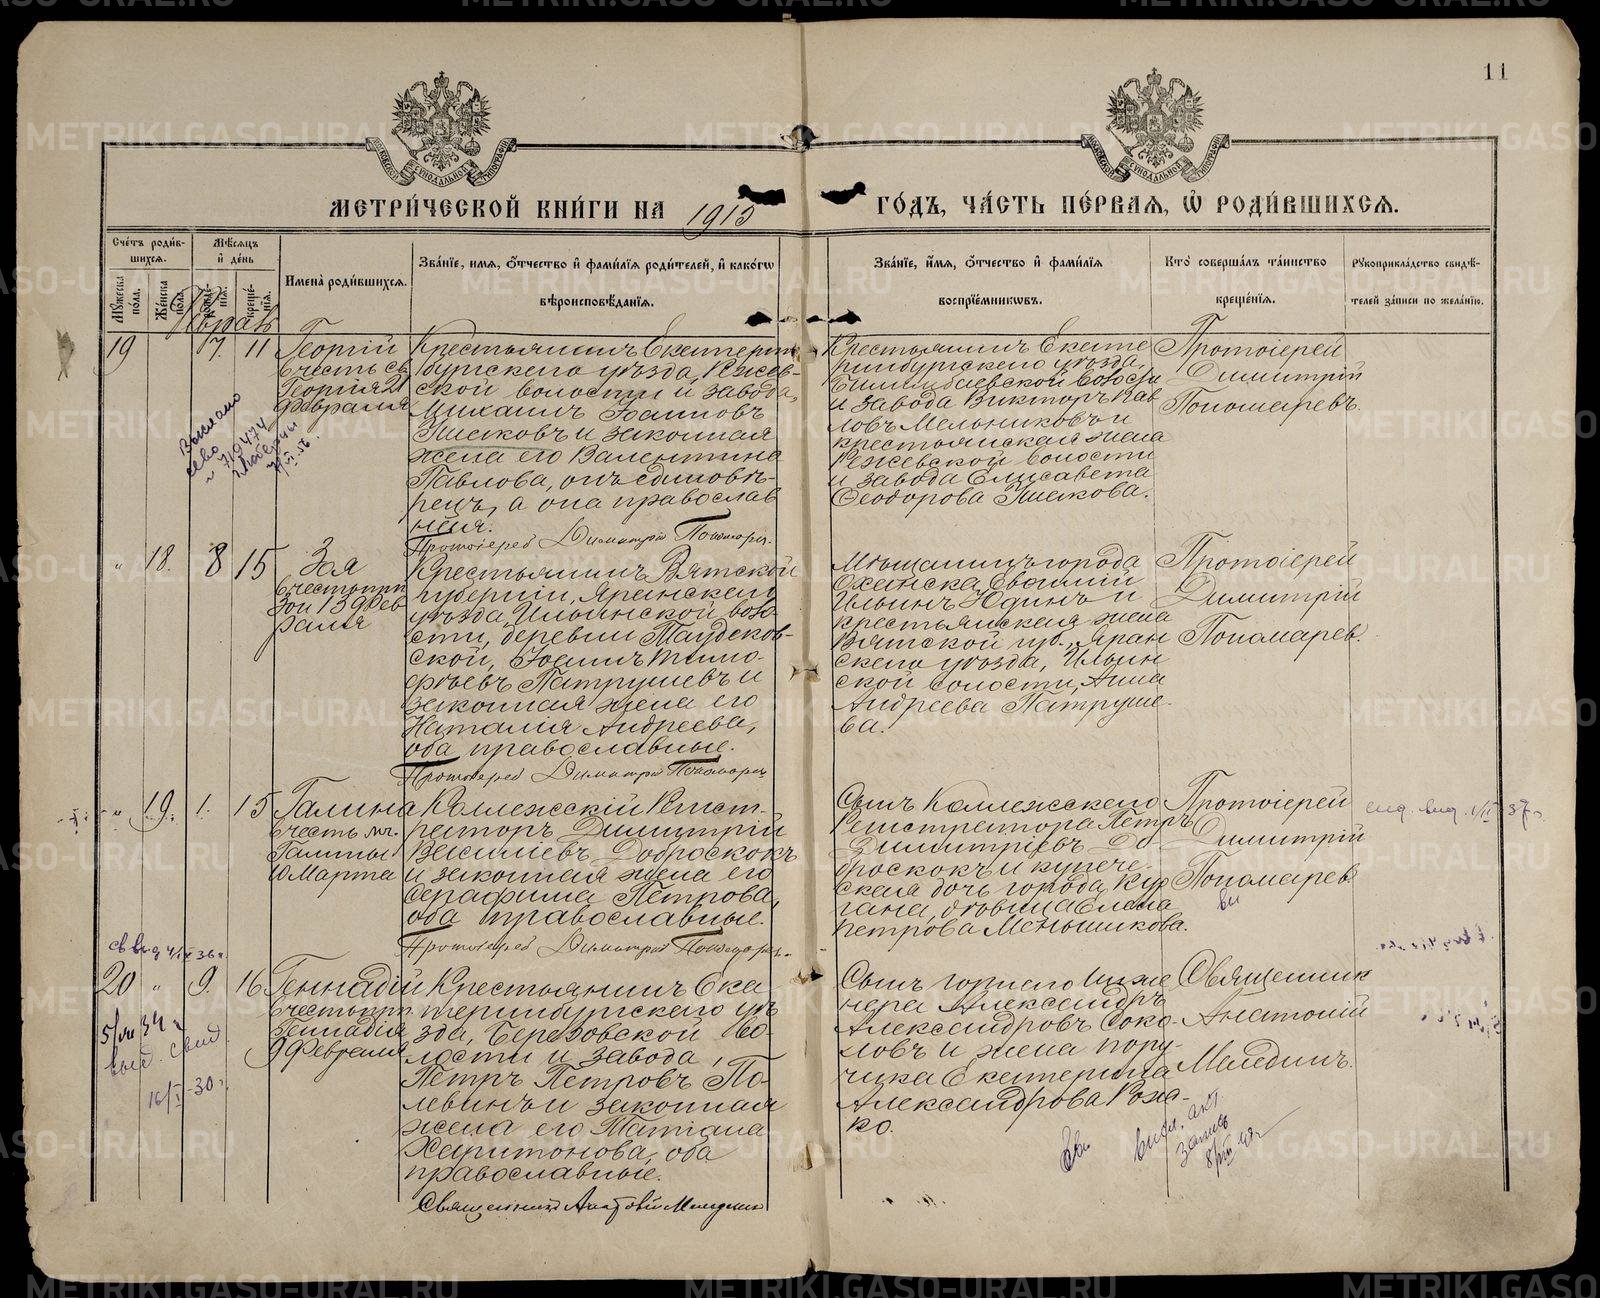 11
МЕТРИ́ЧЕСКОЙ КНИ́ГИ НА 1915 ГО́ДЪ, ЧА́СТЬ ПЕ́РВАЯ, Ѡ҆ РОДИ́ВШИХСЯ.
Сче́тъ роди́вшихся.
Му́жеска по́ла.
Же́нска по́ла.
Мѣ́сяцъ и҆ де́нь
рожде́нїя.
креще́нїя.
Имена̀ роди́вшихся.
Зва́нїе, и́мя, ѻ҆́тчество и҆ фами́лїя роди́телей, и҆ како́гѡ
вѣроисповѣ́данїя.
Зва́нїе, и́мя, ѻ҆́тчество и҆ фами́лїя
воспрїе́мникѡвъ.
Кто̀ соверша́лъ та́инство
креще́нїя.
Рꙋкоприкла́дство свидѣ́-
телей за́писи по жела́нїю.
Февраль
19
7.
11
Георгій
въ честь св.
Георгія 21
Февраля
Крестьянинъ Екатерин
бургскаго уѣзда, Режев-
ской волости и завода,
Михаилъ Іоанновъ
и законная
жена его Валентина
Павлова, онъ единовѣ-
рецъ, а она православ
ная.
Протоіерей Димитрій Пономаревъ
Крестьянинъ Екате
ринбургскаго уѣзда,
Билимбаевской волости
и завода Викторъ Пав
ловъ Мельниковъ и
крестьянская жена
Режевской волости
и завода Елисавета
Ѳеодорова
Протоіерей
Димитрій
Пономаревъ.
"
18.
8
15
Зоя
въ честь прп.
Зои 13 Фев
раля
Крестьянинъ Вятской
губерніи, Яранскаго
уѣзда, Ильинской воло
сти, деревни
ской, Іоаннъ Тимо-
феевъ Патрушевъ и
законная жена его
Наталія Андреева,
оба православные.
Протоіерей Димитрій Пономаревъ
Мѣщанинъ города
Оханска Евфимій
Ильинъ Юдинъ и
крестьянская жена
Вятской губ., Яран
скаго уѣзда, Ильин
ской волости, Анна
Андреева Патруше-
ва.
Протоіерей
Димитрій
Пономаревъ.
"
19.
1.
15
Галина
въ честь мч.
Галины
10 Марта
Коллежскій Регист-
раторъ Димитрій
Василіевъ Доброскокъ
и законная жена его
Серафима Петрова,
оба православные.
Протоіерей Димитрій Пономаревъ
Сынъ Коллежскаго
Регистратора Петръ
Димитріевъ До-
броскокъ и купече-
ская дочь города Кур
гана, дѣвица Елена
Петрова Меньшикова.
Протоіерей
Димитрій
Пономаревъ
20
"
9.
16
Геннадій
въ честь прп.
Геннадія
9 Февраля
Крестьянинъ Ека
теринбургскаго уѣ
зда, Березовской во-
лости и завода,
Петръ Петровъ По-
левинъ и законная
жена его Татіана
Харитонова, оба
православные.
Священникъ Анатолій
Сынъ горнаго инже
нера Александръ
Александровъ Соко-
ловъ и жена пору-
чика Екатерина
Александрова Рож-
ко.
Священник
Анатолій